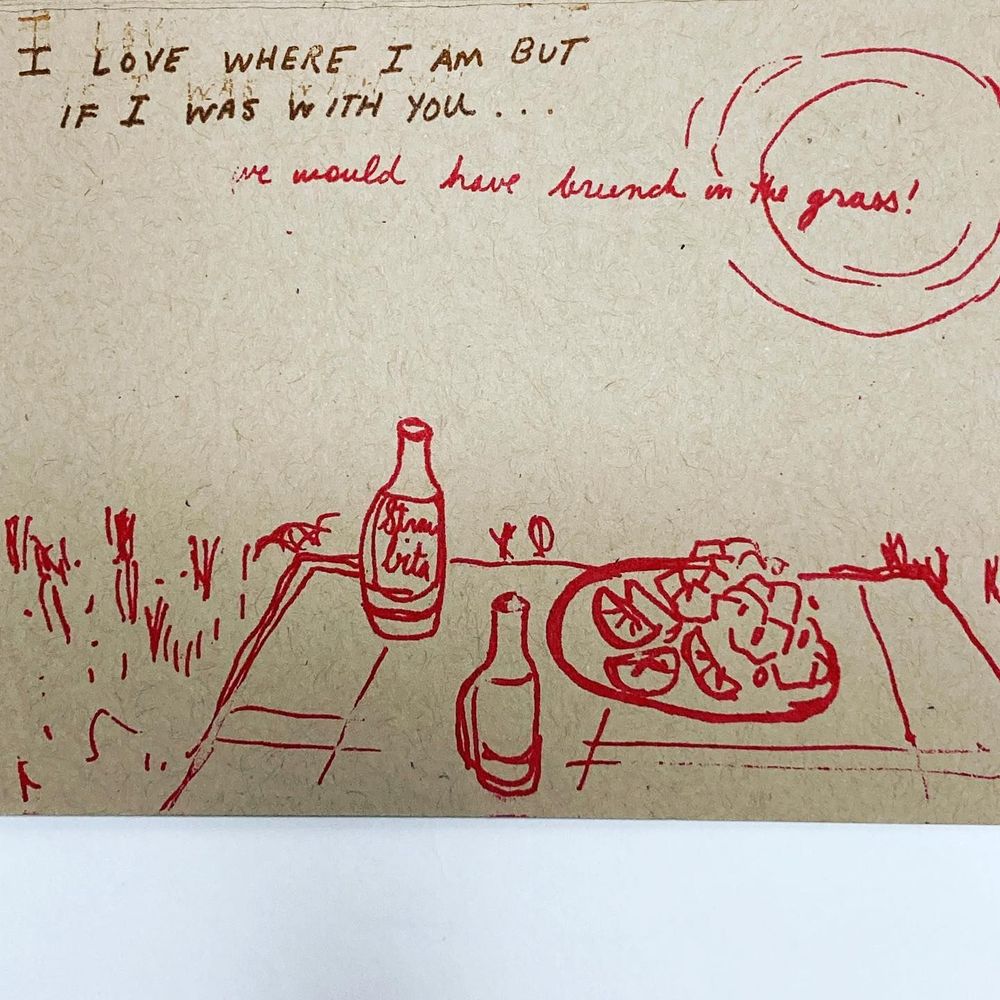 I LOVE WHERE I AM BUT
IF I WAS WITH YOU...
we would have brunch in the grass!
Straw
bita